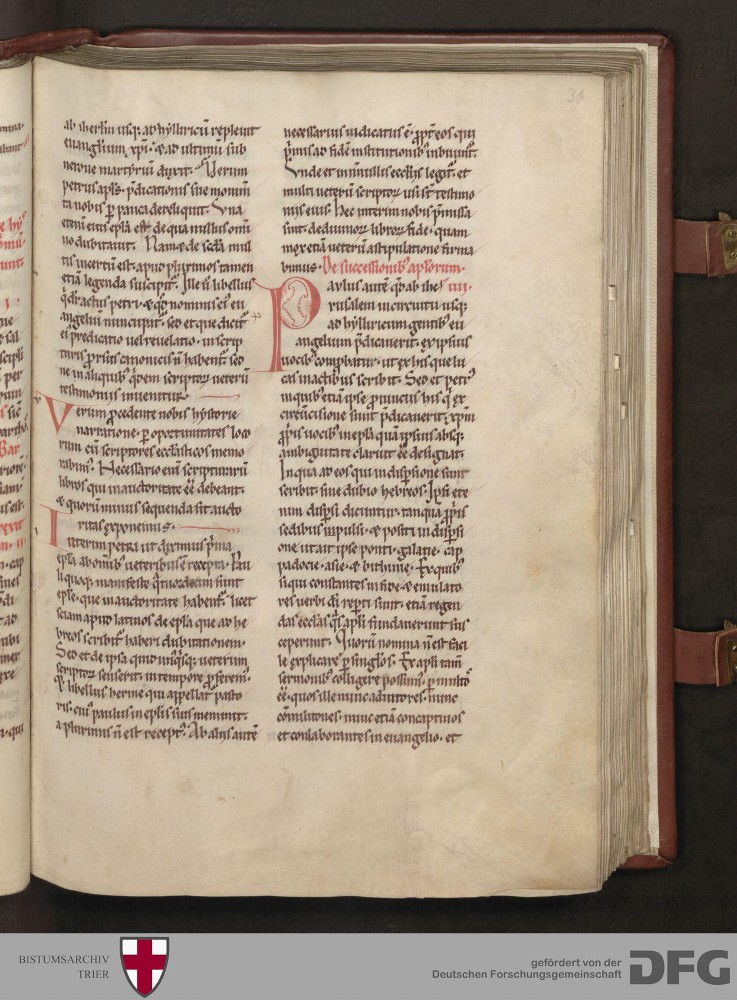 36
ab iherłm usq; ad hẏlliricū repleuit
euangliū xp̄i. & ad ultimū sub
nerone martyriū duxit. Verum
petrus apl̄s. p̄dicationis sue monim̄
ta nobis p̄ pauca dereliquit. Una
etenī eius epl̄a est de qua nullus omī
no dubitauit. Nam & de scd̄a mul
tis incertū est. apud plurimos tamen
etiā legenda suscipit̄. Ille ū libellus
q̇ dr̄ actus petri. & qd̄ nominis ei' eu
angeliū nuncupat̄. sed et que dicit̄
ei' predicatio uel reuelatio. in scrip
turis p̄rsus canonicis n̄ habent̄. sed
ne in aliquib; q̇dem scriptoꝝ ueterū
testimoniis inuenitur.
Verum p̄cedente nobis hẏstorie
narratione. p̄ oportunitates loco
rum cū scriptores ecclāsticos memo
rabim'. Necessario eum scripturarū
libros qui in auctoritate ēē debeant.
& quorū minus sequenda sit aucto
ritas exponemus.
Interim petri ut diximus p̄ma
epl̄a ab omib; ueteribus ē recepta. Pau
li quoq; manifeste q̇tuordecim sunt
epl̄e. que in auctoritate habent̄. licet
sciam apud latinos de epl̄a que ad he
breos scribit̄ haberi dubitationem.
Sed et de ipsa quid unq̇sq; ueterum
scriptoꝝ senserit. in tempore p̄ferem'.
& libellus herme qui appellat̄ pasto
ris. cui' paulus in epl̄is suis meminit.
a plurimis n̄ est recept'. Ab aliis autē
necessarius iudicatus ē. p̄pt̄ eos qui
p̄mis ad fidē institutionib; inbuunt̄.
Unde et in nonnullis ecclīis legit̄. et
multi ueterū scriptoꝝ usi st̄ testimo
niis eius. Hec interim nobis p̄missa
sint. de diuinoꝝ librorꝝ fide. quam
mox etiā ueterū astipulatione firma
bimus. De successionib; apl̄orum.
Paulus autē qd̄ ab ihe IIII.
rusalem in circuitu usq;
ad hẏlliricum gentib; eu
angelium p̄dicauerit. ex ipsius
uocib; comp̄batur. ut ex his que lu
cas in actib; scribit. Sed et petr'
in quib; etiā ipse p̄uinciis his q̇ ex
circūcisione sunt p̄dicauerit xp̄m
p̄priis uocib; in epl̄a quā ipsius absq;
ambiguitate clarut ēē designat.
In qua ad eos qui in dispersione sunt
scribit. sine dubio hebreos. Ipsi ete
nim disp̄si dicuntur. tanquā p̄priis
sedibus inpulsi. & positi in disp̄si
one ut ait ipse ponti. galatie. cap
padocie. asie. & bithinie. Ex quib;
si qui constantes in fide. & emulato
res uerbi dī rep̄ti sunt. etiā regen
das ecclāās q̄s apl̄i fundauerunt sus
ceperunt. Quorū nomina n̄ est faci
le explicare p̄ singlōs. Ex apl̄i tam̄
sermonib; colligere possum'. p̄ multos
ēē. quos ille nunc adiutores. nunc
cōmilitones. nunc etiā concaptiuos
et conlaborantes in euangelio. et
BISTUMSARCHIV
TRIER
gefördert von der
Deutschen Forschungsgemeinschaft
DFG